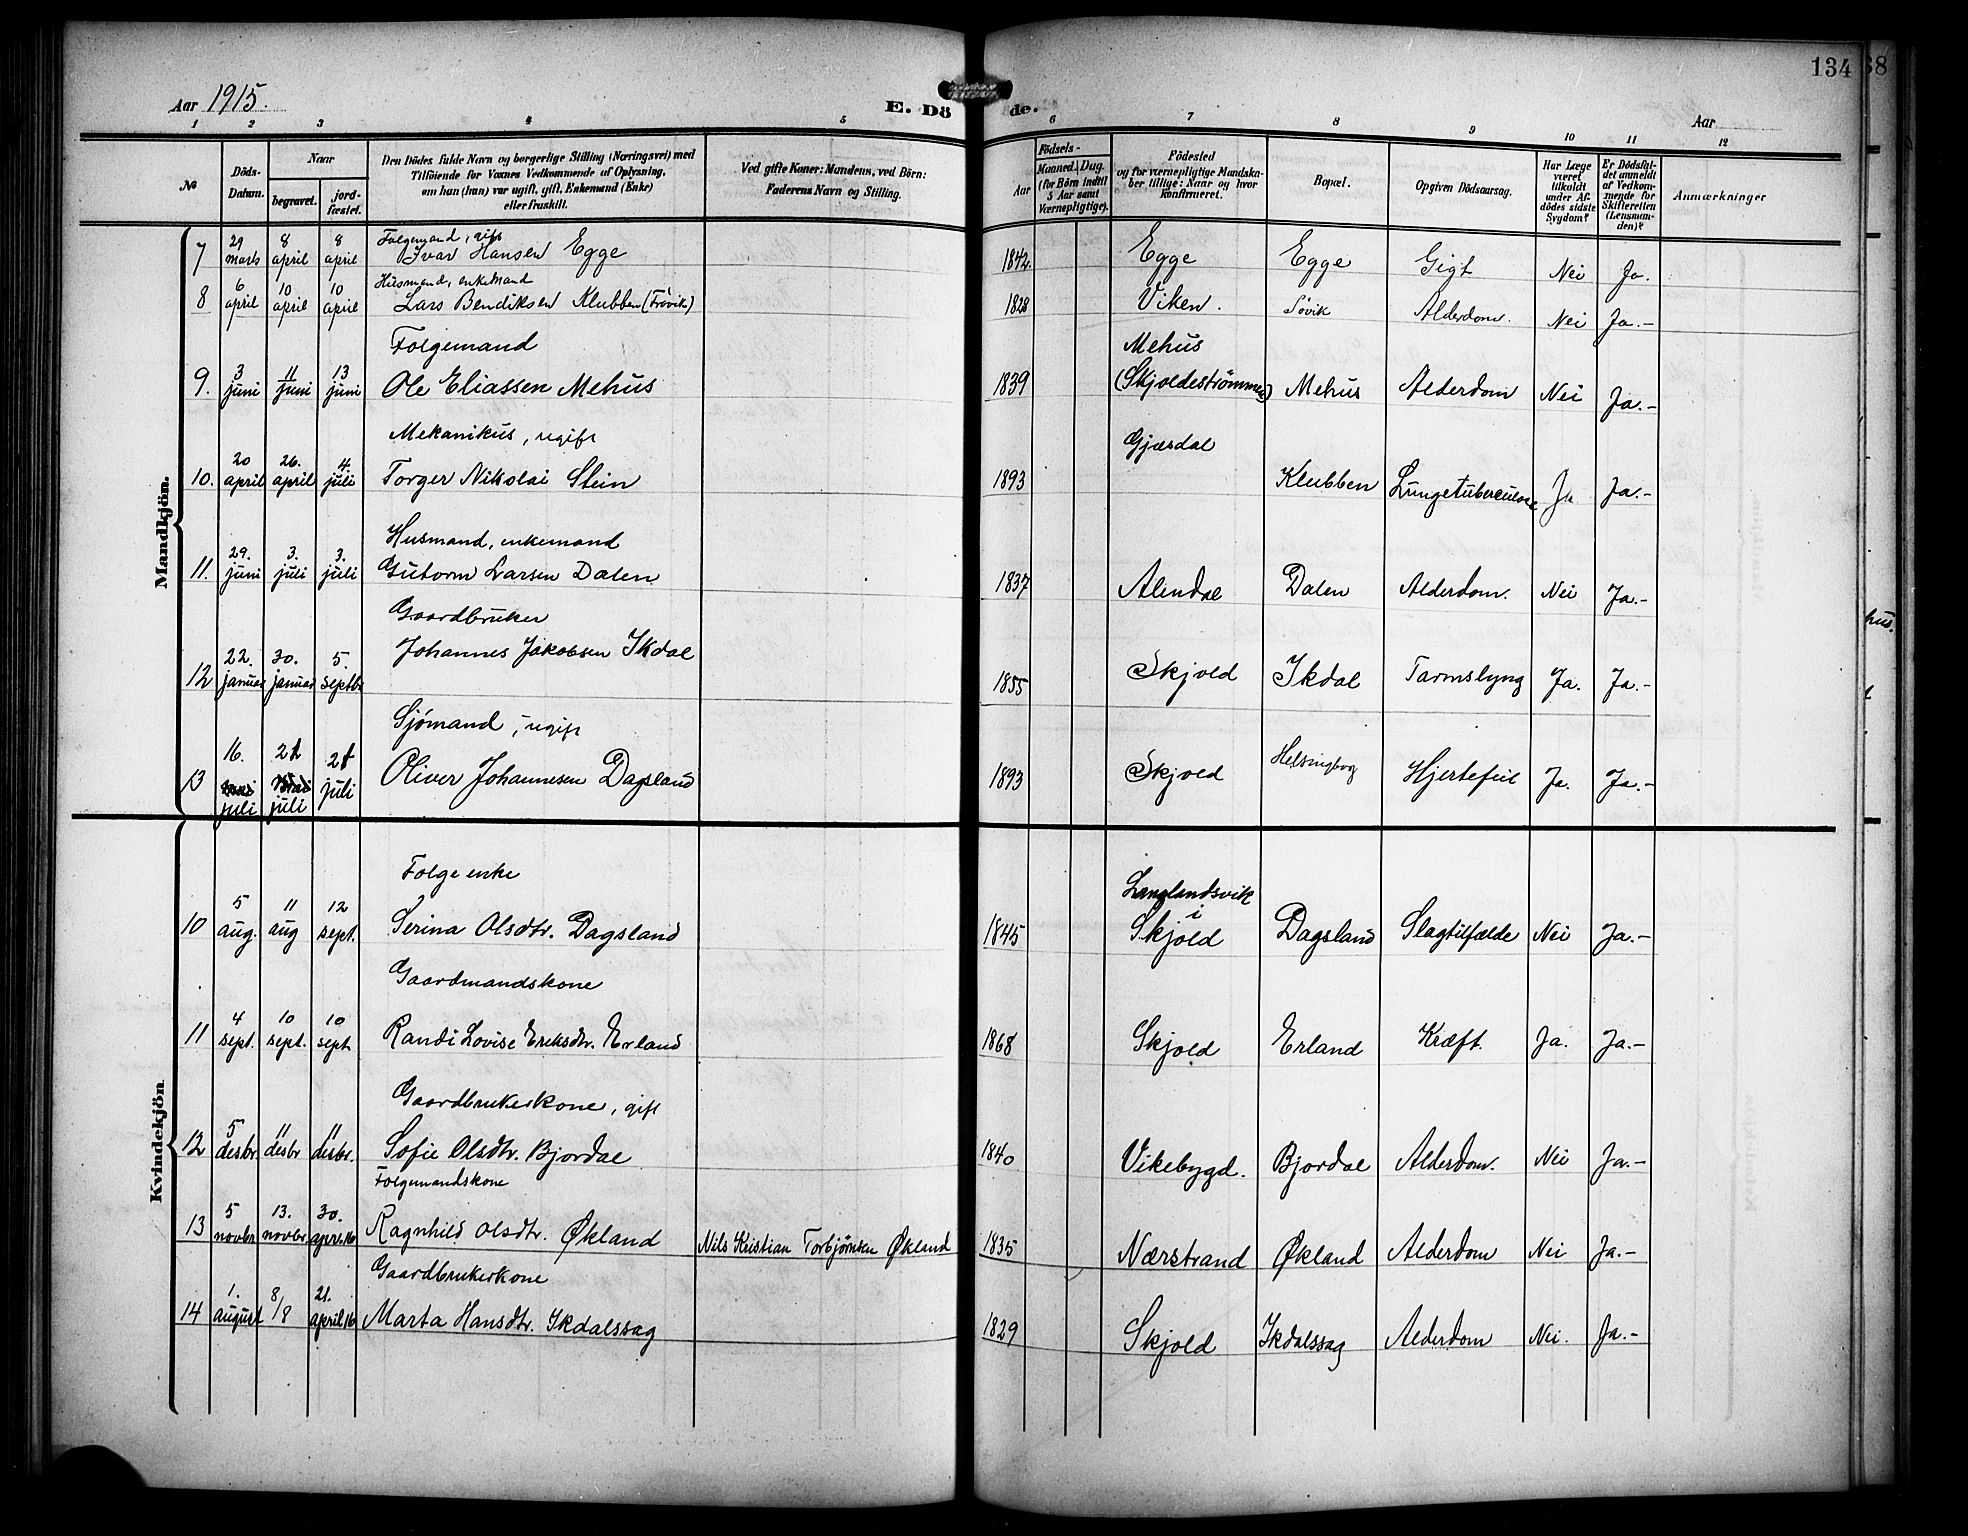 134
68
Aar 1915.
E. Dö de.
Aar
1 2 3 4 5 6 7 8 9 10 11 12
No
Döds-
Datum.
Naar
begravet.
jord-
fæstet.
Den Dödes fulde Navn og borgerlige Stilling (Næringsvei) med
Tilföiende for Voxnes Vedkommende af Oplysning,
om han (hun) var ugift, gift, Enkemand (Enke)
eller fraskilt.
Ved gifte Koner: Mandens, ved Börn:
Faderens Navn og Stilling.
Födsels-
Aar
Maaned. Dag.
(for Börn indtil
5 Aar samt
Værnepligtige).
Födested
og for værnepligtige Mandska-
ber tillige: Naar og hvor
konfirmeret.
Bopæl.
Opgiven Dödsaarsag.
Har Læge
været
tilkaldt
under Af-
dödes sidste
Sygdom?
Er Dödsfal-
det anmeldt
af Vedkom-
mende for
Skifteretten
(Lensman-
den)?
Anmærkninger
Mandkjön.
Folgemand, gift
7 29 marts 8 april 8 april Ivar Hansen Egge 1842. Egge Egge Gigt Nei Ja.
Husmand, enkemand
8 6 april 10 april 10 april Lars Bendiksen Klubben (Frövik) 1828 Viken. Sövik Alderdom. Nei Ja.-
Folgemand Mehus
9. 3 juni 11 juni 13 juni Ole Eliassen Mehus 1839 (Skjoldestrømmen) Mehus Alderdom Nei Ja.-
Mekanikus, ugift Gjærdal
10. 20 april 26. april 4. juli Torger Nikolai Stein 1893 Klubben Lungetuberculose Ja Ja.-
Husmand, enkemand
11. 29. juni 3. juli 3. juli Gutorm Larsen Dalen 1837 Alendal Dalen Alderdom. Nei Ja.-
Gaardbruker
12 22. januar 30. januar 5. septbr Johannes Jakobsen Ikdal 1855 Skjold Ikdal Tarmslyng Ja. Ja.-
Sjömand, ugift
13 16. juli 21 juli 21 juli Oliver Johannesen Dagsland 1893 Skjold Helsingborg Hjertefeil Ja. Ja.-
Kvindekjön
Folgeenke Langlandsvik i
10 5 aug. 11 aug 12 sept. Serina Olsdtr. Dagsland 1845 Skjold Dagsland Slagtilfælde Nei Ja.-
Gaardmandskone
11 4 sept. 10 sept. 10 sept Randi Lovise Eriksdtr. Erland 1868 Skjold Erland Kræft. Ja. Ja.-
Gaardbrukerkone, gift
12 5 desbr. 11 desbr 11 desbr. Sofie Olsdtr. Bjordal 1840 Vikebygd. Bjordal Alderdom. Nei Ja.-
Folgemandskone
13 5 novbr 13. novbr 30. apr. 16 Ragnhild Olsdtr. Økland Nils Kristian Torbjørnsen Økland 1835 Nærstrand Økland Alderdom Nei Ja.-
Gaardbrukerkone
14 1. august 8/8 21. april 16 Marta Hansdtr. Ikdalssag 1829 Skjold Ikdalssag Alderdom Nei. Ja.-
hus.